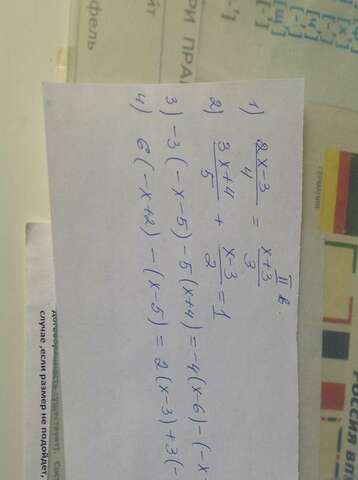 II в
1) (2x-3)/4 = (x+3)/3
2) (3x+4)/5 + (x-3)/2 = 1
3) -3(-x-5)-5(x+4)=-4(x-6)-(-x-
4) 6(-x+2)-(x-5)=2(x-3)+3(-
фель
РИ ПРА
ГЕРМАНИЯ
РОССИЯ
случае, если размер не подойдет,